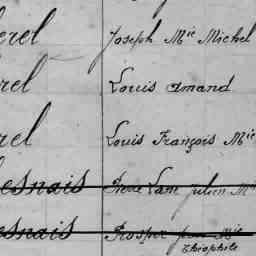 erel Joseph Mie Michel
rel Louis Amand
rel Louis François Mie
esnais Pierre julien Mie
esnais Prosper Mie
Théophile